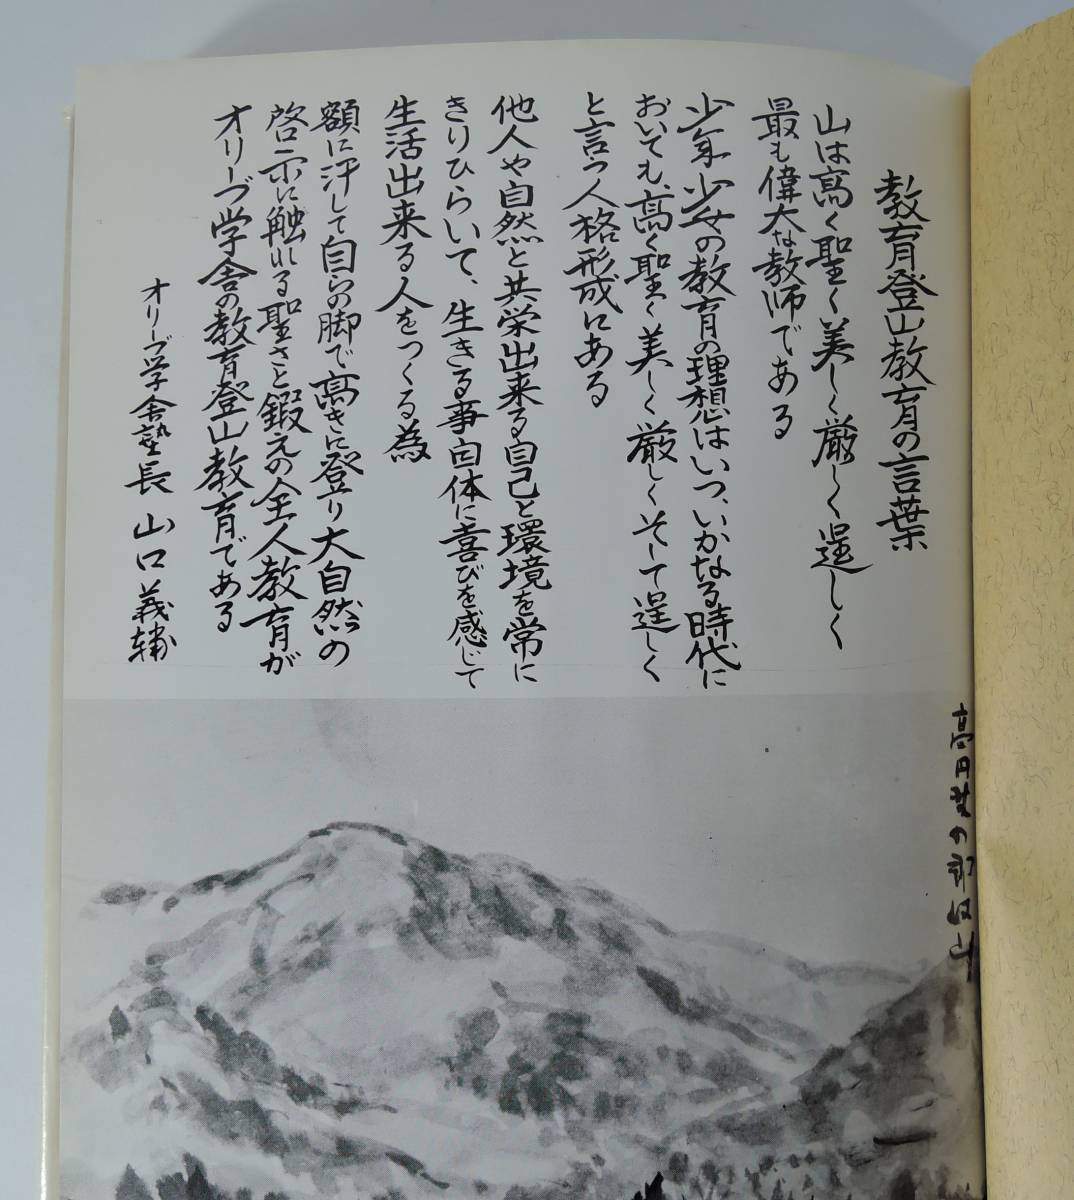 教育登山教育の言葉
山は高く聖く美しく厳しく逞しく
最も偉大な教師である
少年少女の教育の理想はいつ、いかなる時代に
おいても、高く聖く美しく厳しくそして逞しく
と言う人格形成にある
他人や自然と共栄出来る自己と環境を常に
きりひらいて、生きる事自体に喜びを感じて
生活出来る人をつくる為
額に汗して自らの脚で高きに登り大自然の
啓示に触れる聖さと鍛えの全人教育が
オリーブ学舎の教育登山教育である
オリーブ学舎塾長 山口義輔
高円